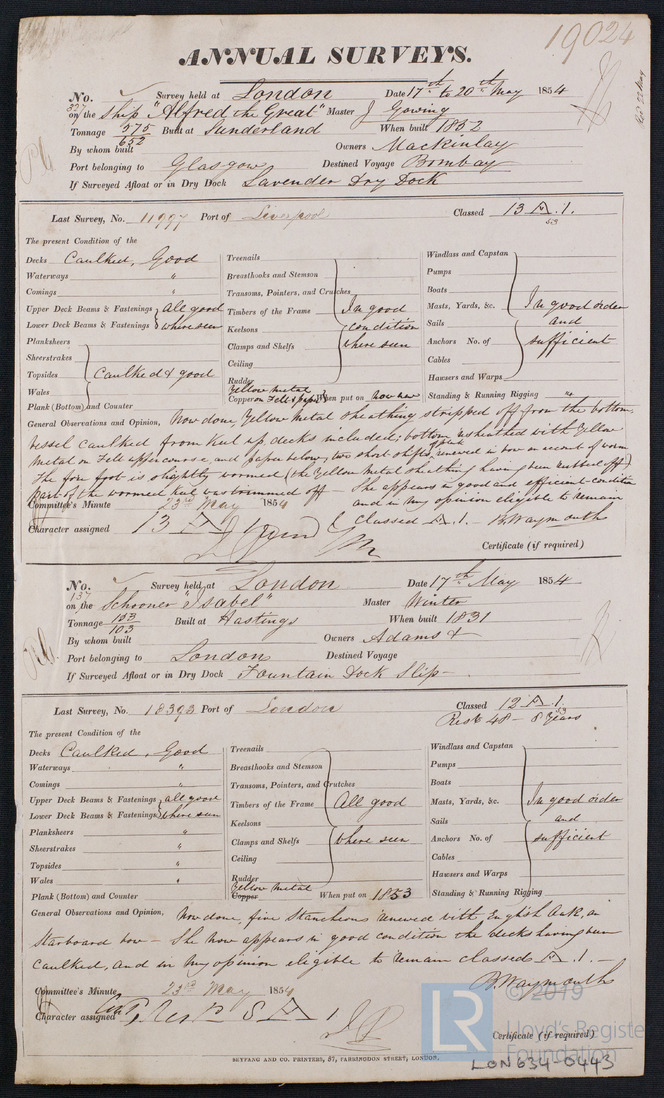 19024
ANNUAL SURVEYS.
No. Survey held at London Date 17th to 20th May 1854
327 on the Ship "Alfred the Great" Master J Gowing
Tonnage 575/652 Built at Sunderland When built 1832
By whom built Owners Mackinlay
Port belonging to Glasgow Destined Voyage Bombay
If Surveyed Afloat or in Dry Dock Lavender Dry Dock
Last Survey, No. 11997 Port of Liverpool Classed 13 A.1.
53
The present Condition of the
Decks Caulked, Good
Waterways "
Comings "
Upper Deck Beams & Fastenings all good
Lower Deck Beams & Fastenings where seen
Planksheers
Sheerstrakes
Topsides Caulked & good
Wales
Plank (Bottom) and Counter
Treenails
Breasthooks and Stemson
Transoms, Pointers, and Crutches
Timbers of the Frame In good
Keelsons condition
Clamps and Shelfs where seen
Ceiling
Rudder
Yellow Metal
Copper on Felt & paper When put on now new
Windlass and Capstan
Pumps
Boats
Masts, Yards, &c. In good order
Sails and
Anchors No. of sufficient
Cables
Hawsers and Warps
Standing & Running Rigging "
General Observations and Opinion, Now done, Yellow Metal sheathing stripped off from the bottom,
vessel caulked from keel up decks included; bottom resheathed with Yellow
Metal on Felt upper course and paper below, two short shifts of plank renewed in bow on account of worm
The fore foot is slightly wormed (the Yellow Metal sheathing having been rubbed off)
part of the wormed keel was trimmed off – She appears in good and efficient condition
and in my opinion eligible to remain
Committee's Minute 23rd May 1854
classed A.1. B Waymouth
Character assigned 13 A 1
Certificate (if required)
No. Survey held at London Date 17th May 1854
137 on the Schooner "Isabel" Master Winter
Tonnage 103/103 Built at Hastings When built 1831
By whom built Owners Adams &
Port belonging to London Destined Voyage
If Surveyed Afloat or in Dry Dock Fountain Dock Slip –
Last Survey, No. 18393 Port of London Classed 12 A 1
53
Restd 48 – 8 Years
The present Condition of the
Decks Caulked, Good
Waterways "
Comings "
Upper Deck Beams & Fastenings all good
Lower Deck Beams & Fastenings where seen
Planksheers "
Sheerstrakes "
Topsides "
Wales "
Plank (Bottom) and Counter
Treenails
Breasthooks and Stemson
Transoms, Pointers, and Crutches
Timbers of the Frame All good
Keelsons
Clamps and Shelfs where seen
Ceiling
Rudder
Yellow Metal
Copper When put on 1853
Windlass and Capstan
Pumps
Boats
Masts, Yards, &c. In good order
Sails and
Anchors No. of sufficient
Cables
Hawsers and Warps
Standing & Running Rigging
General Observations and Opinion, Now done, five Stancheons renewed with English Oak, on
Starboard bow – She now appears in good condition the decks having been
caulked, and in my opinion eligible to remain classed A.1. –
B Waymouth
Committee's Minute 23rd May 1854
Character assigned Contd Restd 8 A 1
Certificate (if required)
SEYFANG AND CO. PRINTERS, 57, FARRINGDON STREET, LONDON.
LR
© 2019
Lloyd's Register
Foundation
LON634-0443